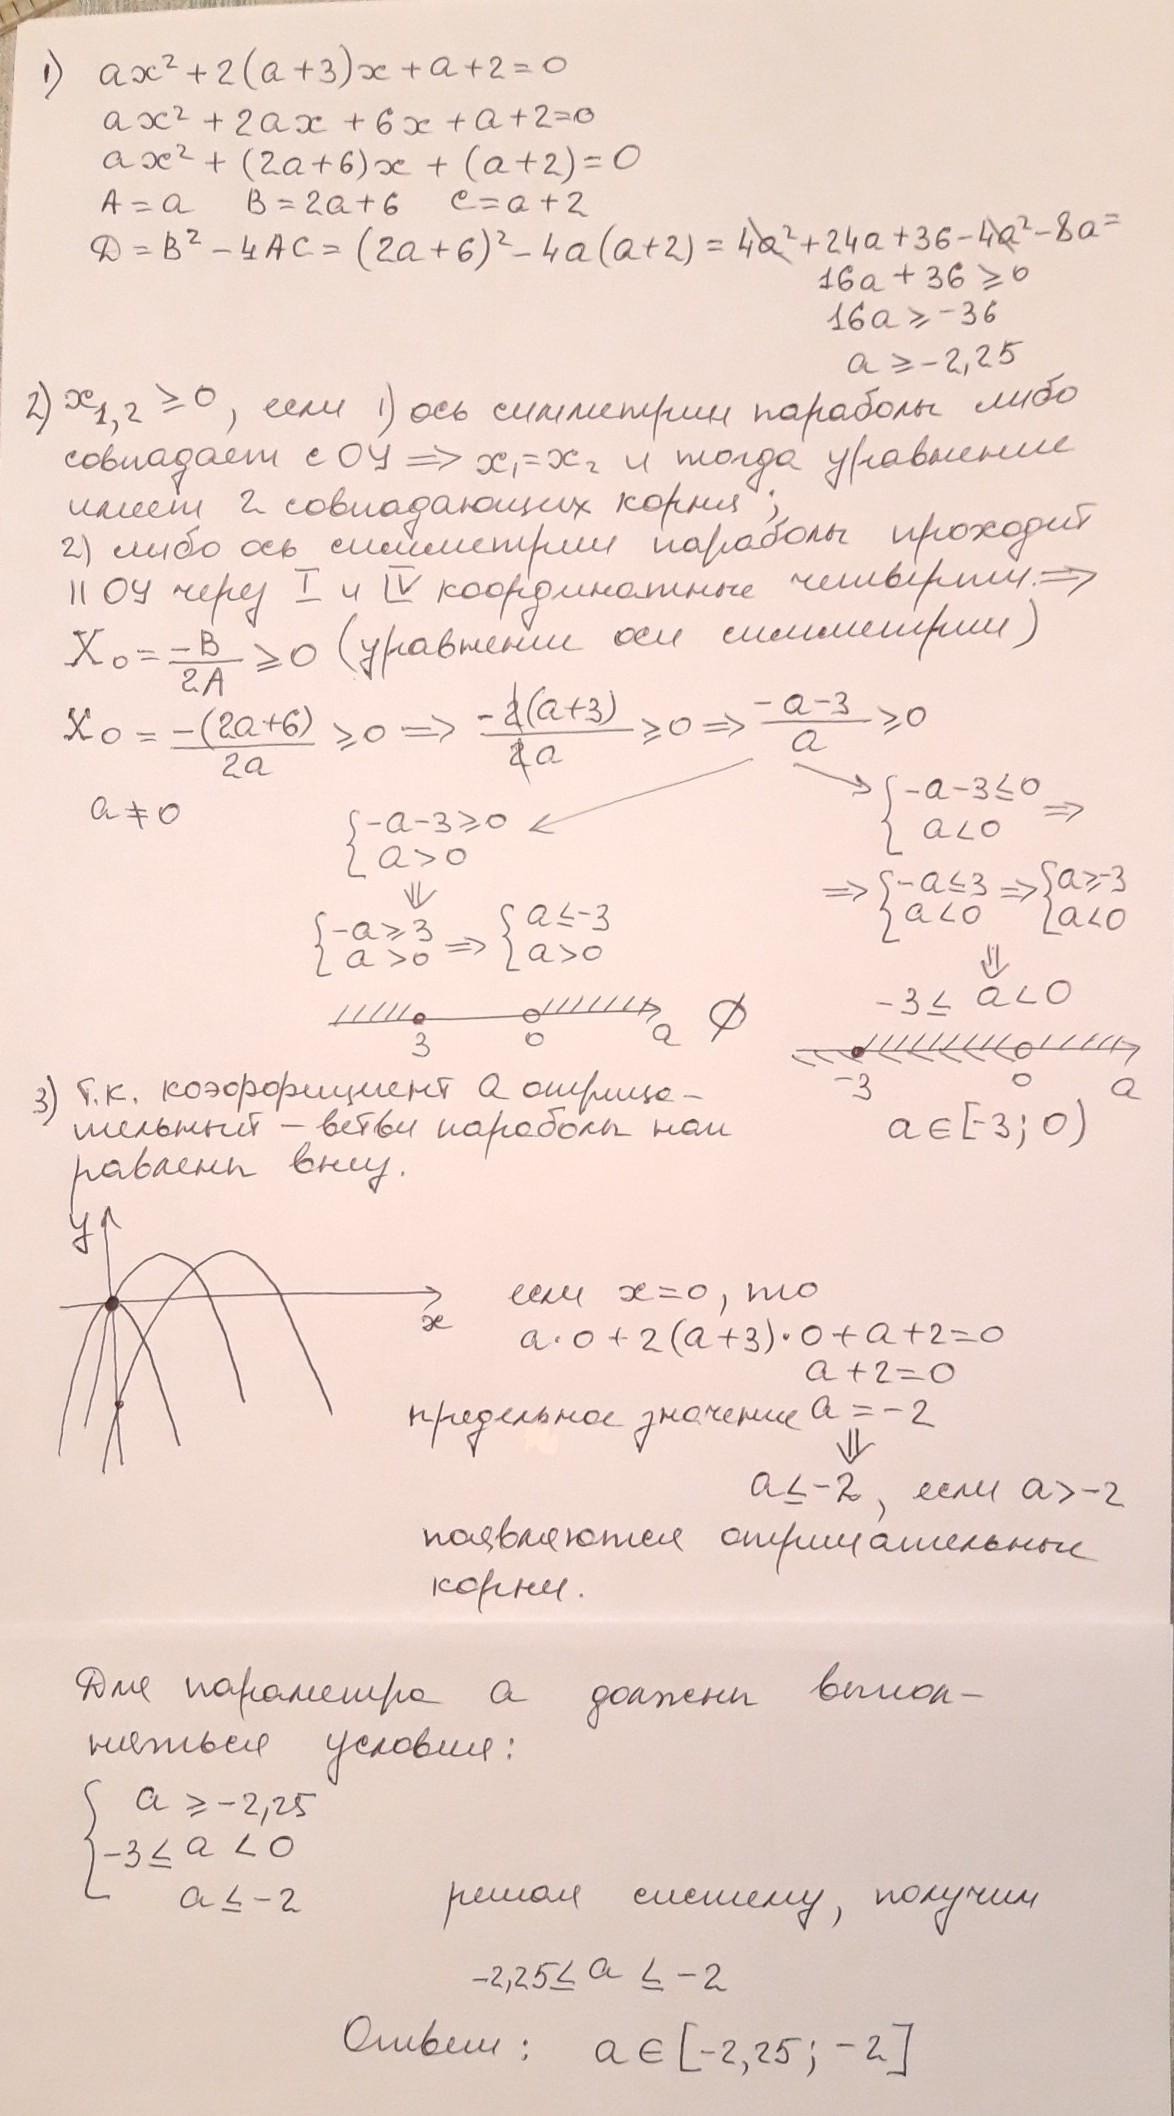 1) ax² + 2(a+3)x + a + 2 = 0
ax² + 2ax + 6x + a + 2 = 0
ax² + (2a+6)x + (a+2) = 0
A = a   B = 2a+6   C = a+2
D = B² - 4AC = (2a+6)² - 4a(a+2) = 4a² + 24a + 36 - 4a² - 8a =
16a + 36 ≥ 0
16a ≥ -36
a ≥ -2,25
2) x₁,₂ ≥ 0, если 1) ось симметрии параболы либо
совпадает с OY ⇒ x₁ = x₂ и тогда уравнение
имеет 2 совпадающих корня;
2) либо ось симметрии параболы проходит
|| OY через I и IV координатные четверти ⇒
X₀ = -B/2A ≥ 0 (уравнение оси симметрии)
X₀ = -(2a+6)/2a ≥ 0 ⇒ -2(a+3)/2a ≥ 0 ⇒ -a-3/a ≥ 0
a ≠ 0
{ -a-3 ≥ 0
a > 0
⇓
{ -a ≥ 3 ⇒ { a ≤ -3
a > 0   a > 0
3   0   a   ∅
{ -a-3 ≤ 0 ⇒
a < 0
⇒ { -a ≤ 3 ⇒ { a ≥ -3
a < 0   a < 0
⇓
-3 ≤ a < 0
-3   0   a
a ∈ [-3; 0)
3) т.к. коэффициент a отрица-
тельный – ветви параболы нап
равлены вниз.
y
x
если x = 0, то
a·0 + 2(a+3)·0 + a + 2 = 0
a + 2 = 0
предельное значение a = -2
⇓
a ≤ -2, если a > -2
появляются отрицательные
корни.
Для параметра a должны выпол-
няться условия:
{ a ≥ -2,25
-3 ≤ a < 0
a ≤ -2   решая систему, получим
-2,25 ≤ a ≤ -2
Ответ: a ∈ [-2,25; -2]